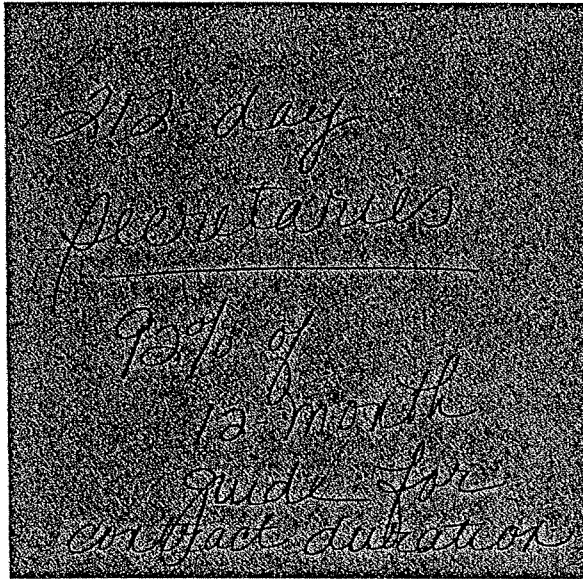 212 day
secretaries
92% of
12 month
guide for
contract duration